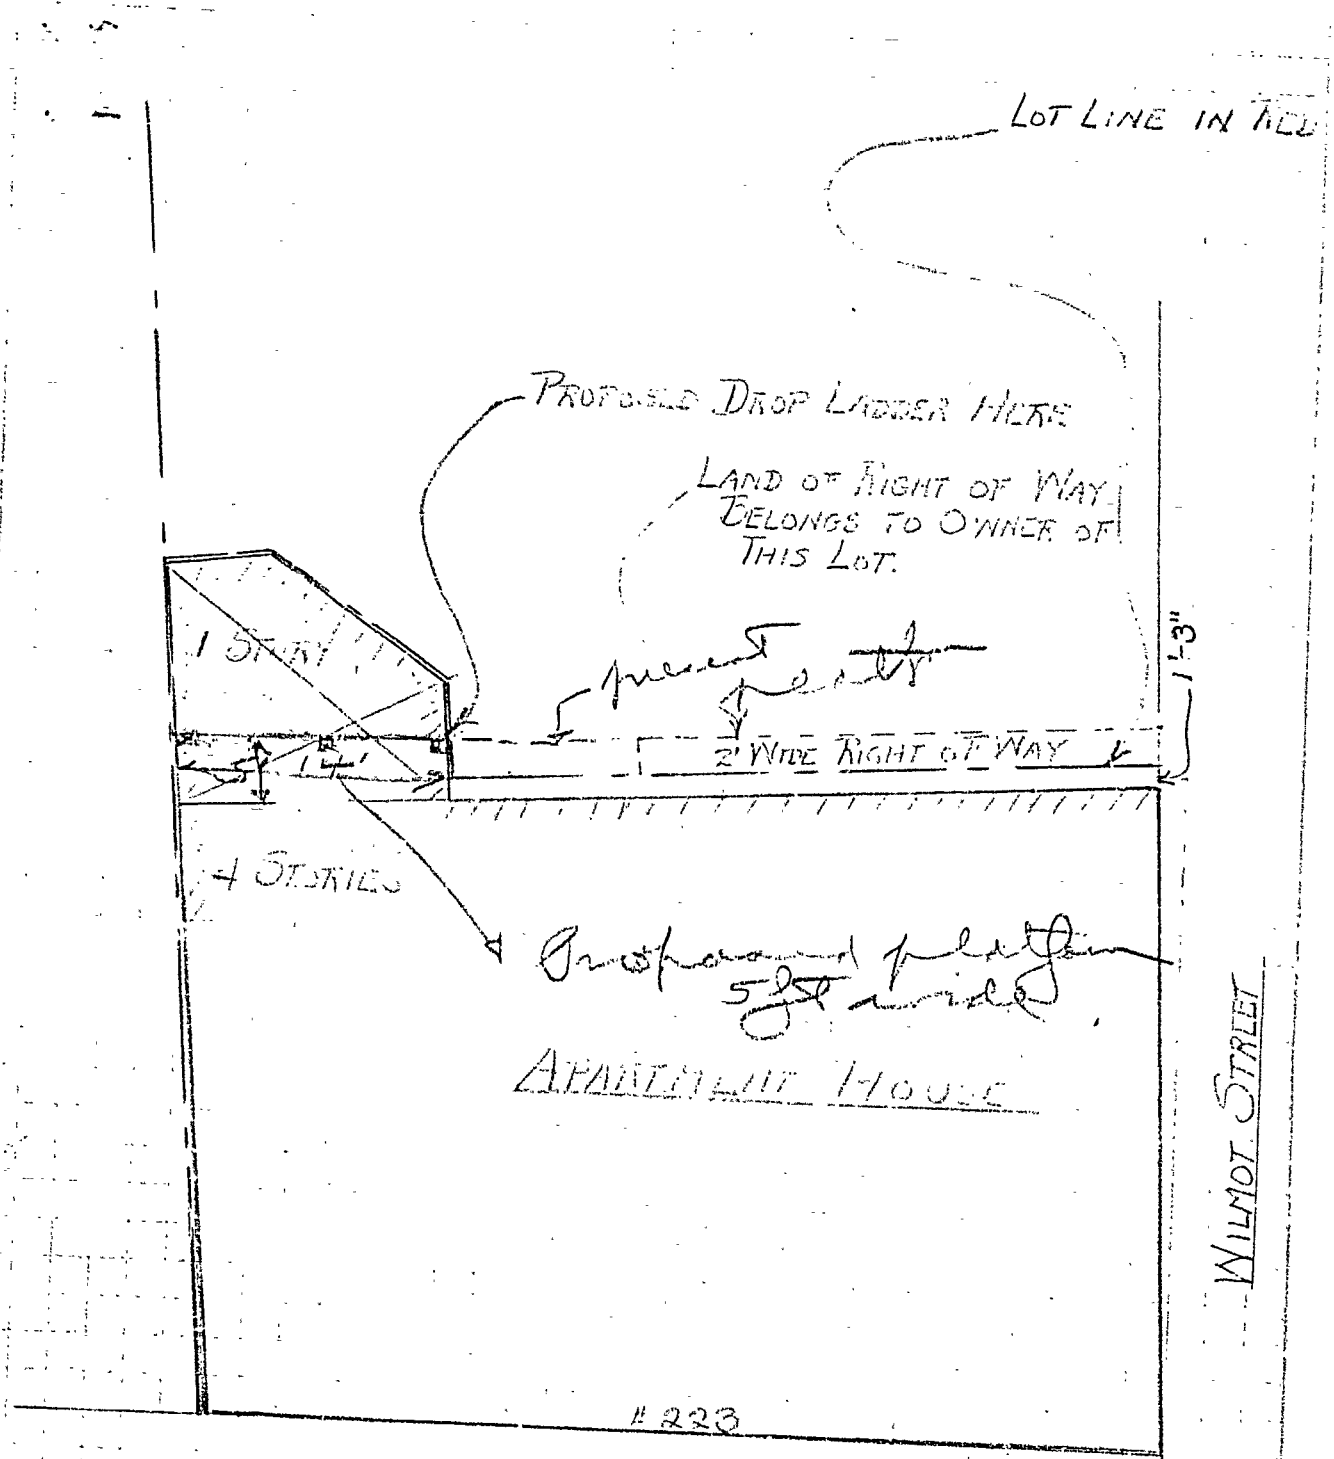 LOT LINE IN RED
PROPOSED DROP LADDER HERE
LAND OF RIGHT OF WAY
BELONGS TO OWNER OF
THIS LOT.
1 STORY
present
1'-3"
2' WIDE RIGHT OF WAY
14'
4 STORIES
Proposed platform
5 ft wide
APARTMENT HOUSE
WILMOT STREET
# 223